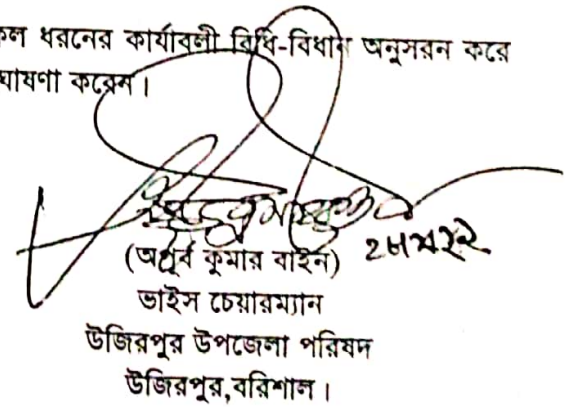 কল ধরনের কার্যাবলী বিধি-বিধান অনুসরন করে
ঘাষণা করেন।
(অপূর্ব কুমার বাইন)
ভাইস চেয়ারম্যান
উজিরপুর উপজেলা পরিষদ
উজিরপুর,বরিশাল।